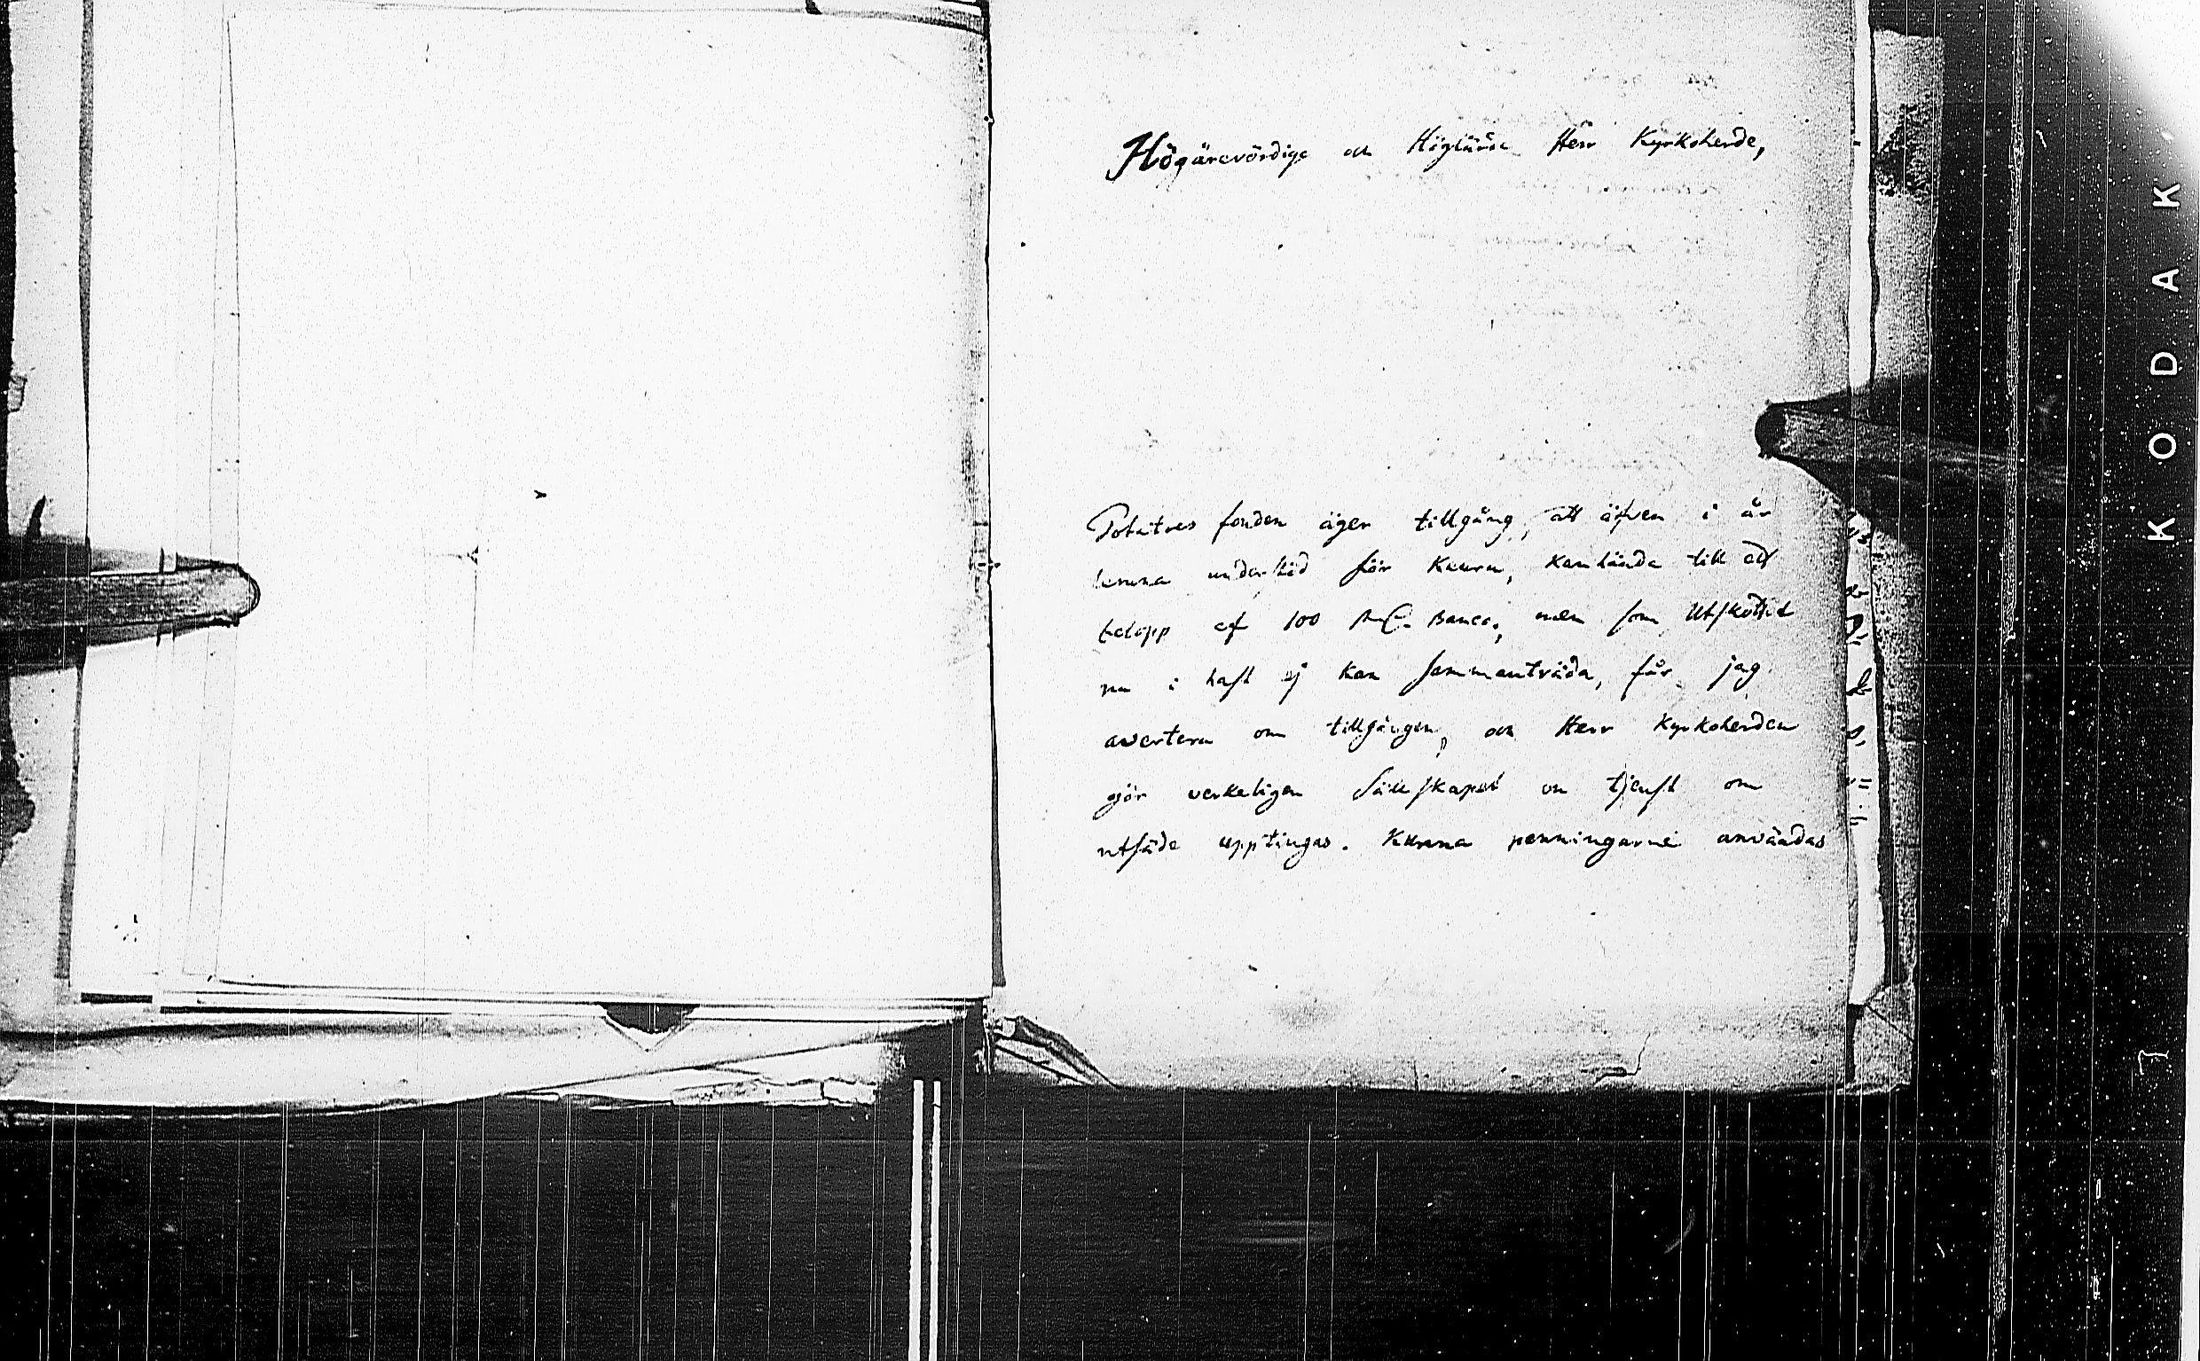 Högärevördige och Höglärde Herr Kyrkoherde,
Potates fonden äger tillgång, att äfven i år
lemna understöd för Keuru, kanhända till ett
belopp af 100 Banco, men som Utskottet
nu i hast ej kan sammanträda, får jag
avertera om tillgången, och Herr Kyrkoherden
gör verkeligen Sällskapet en tjenst om
utsäde upptingas. Kunna penningarne användas
KODAK